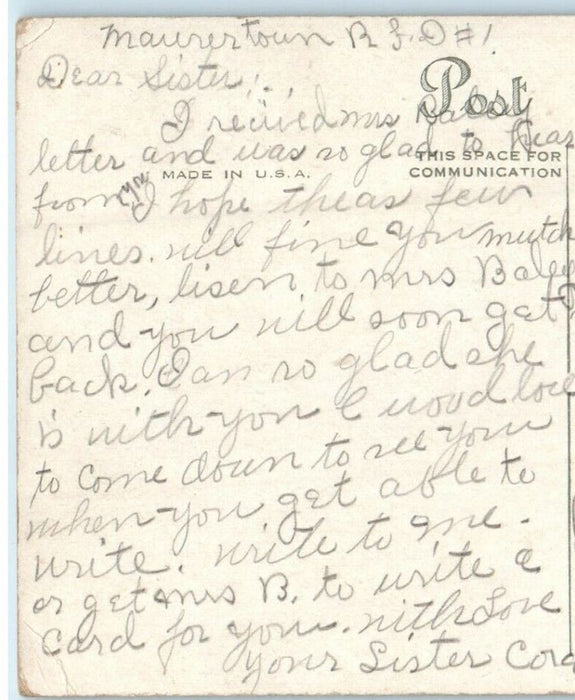 Maurertown R F D #1
Dear Sister,
Post
I recived mrs Baley
letter and was so glad to hear
THIS SPACE FOR
COMMUNICATION
MADE IN U.S.A.
from you I hope theas few
lines. will fine you mutch
better, lisen to mrs Baley
and you will soon get
back. I an so glad she
is with you I wood love
to come down to see you
when you get able to
write. write to me.
or get mrs B. to write a
card for you. with Love
your Sister Cora